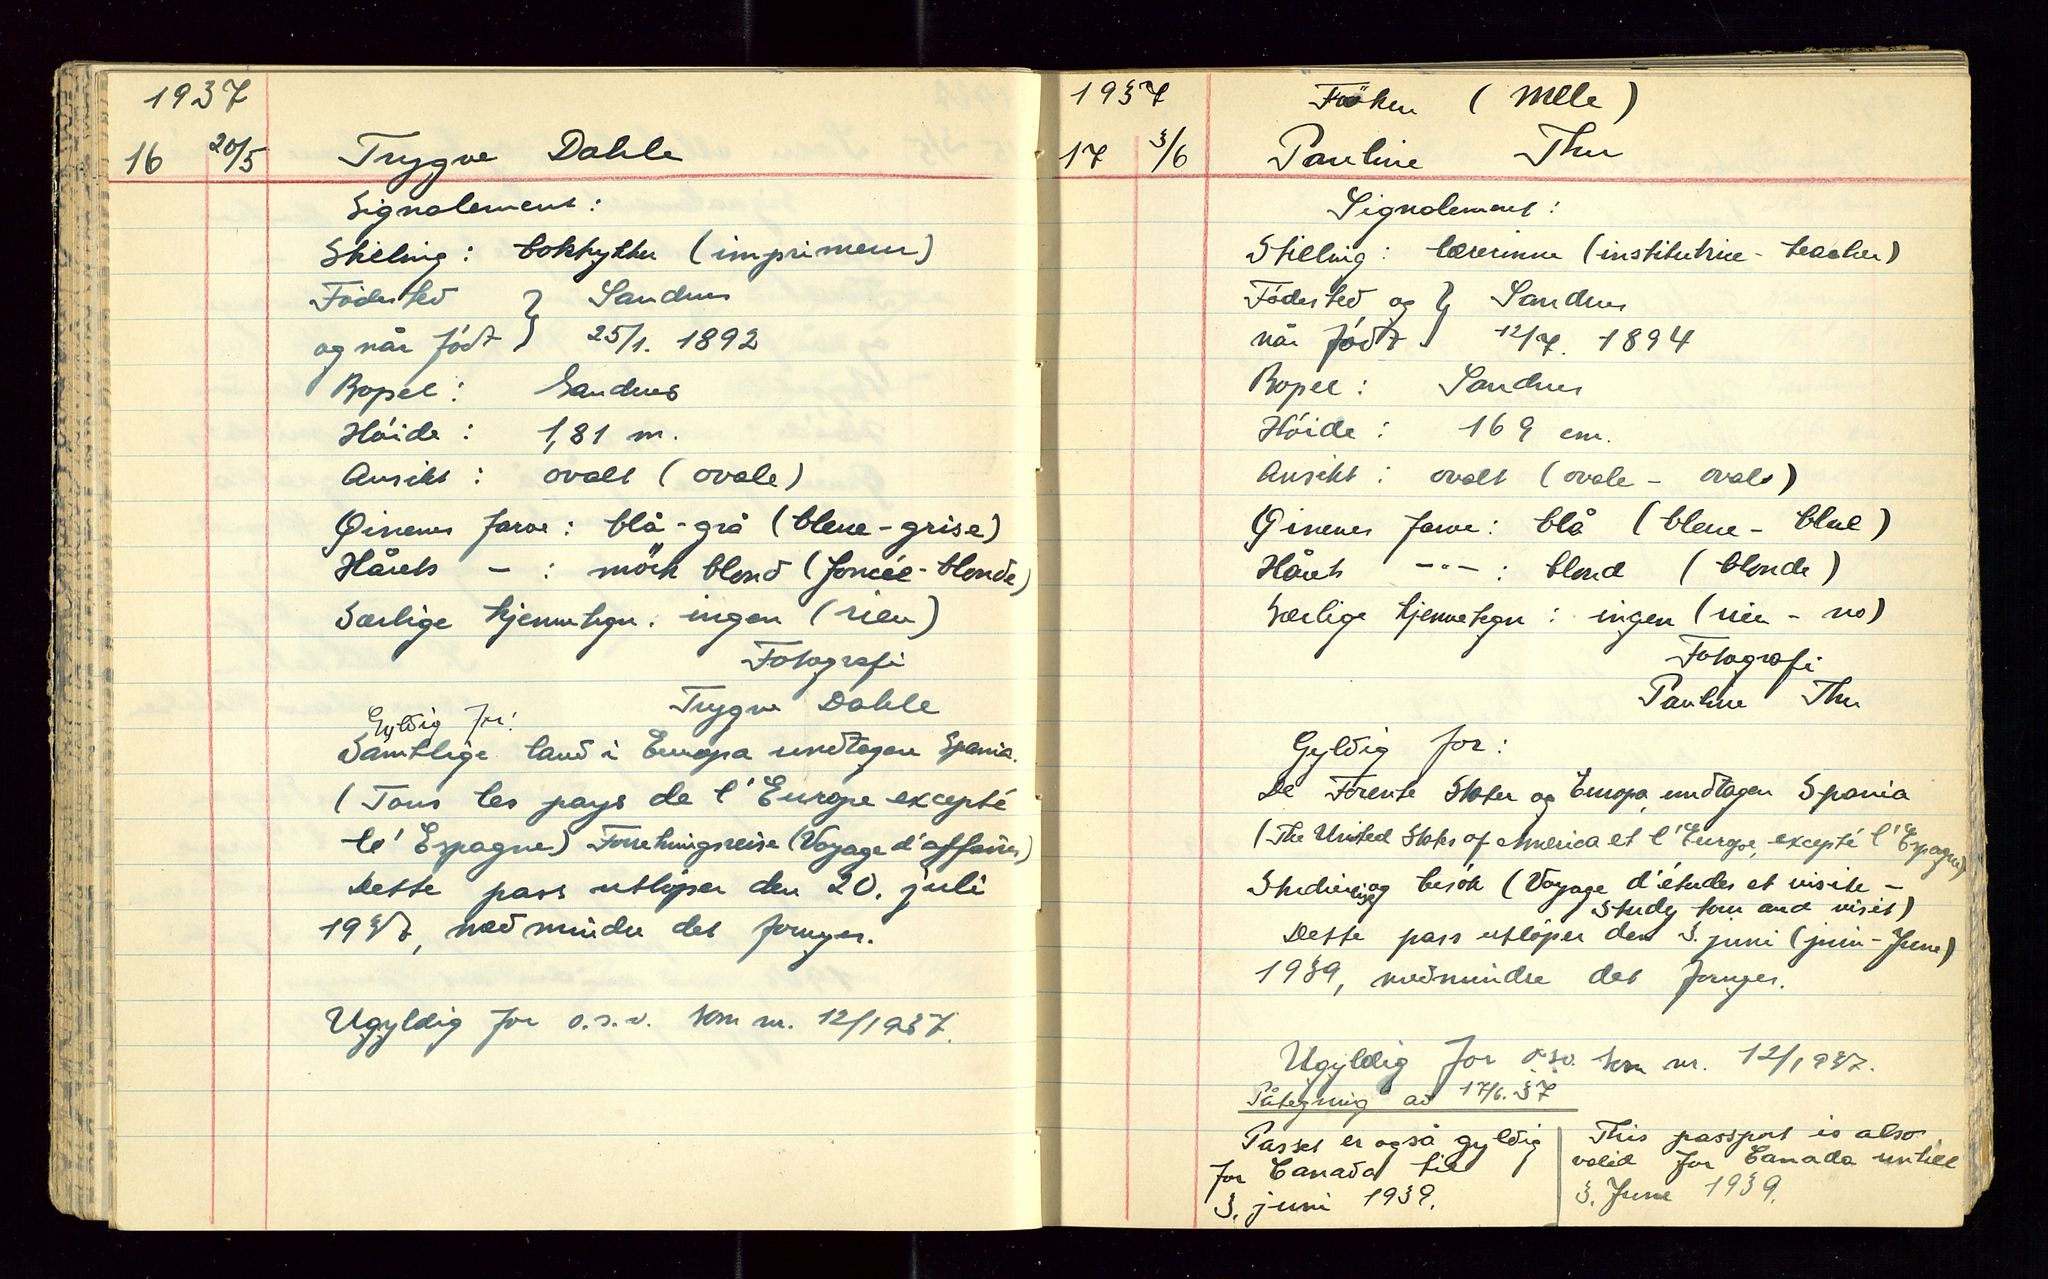 1937
16 20/5 Trygve Dahle
Signalement:
Stilling: boktrykker (imprimeur)
Fødested } Sandnes
og når født } 25/1. 1892
Bopel: Sandnes
Høide: 1,81 m.
Ansikt: ovalt (ovale)
Øinenes farve: blå-grå (bleue-grise)
Hårets — : mörk blond (foncée-blonde)
Særlige kjennetegn: ingen (rien)
Fotografi
Trygve Dahle
Gyldig for:
Samtlige land i Europa undtagen Spania.
(Tous les pays de l'Europe excepté
le' Espagne) Forretningsreise (Voyage d'affaires)
Dette pass utløper den 20. juli
1937, medmindre det fornyes.
Ugyldig for o.s.v. som nr. 12/1937.
1937 Frøken (Mlle)
17 3/6 Pauline Thu
Signalement:
Stilling: lærerinne (institutrice - teacher)
Fødested og } Sandnes
når født } 12/7. 1894
Bopel: Sandnes
Høide: 169 cm.
Ansikt: ovalt (ovale - oval)
Øinenes farve: blå (bleue - blue)
Hårets -"- : blond (blonde)
Særlige kjennetegn: ingen (rien - no)
Fotografi
Pauline Thu
Gyldig for:
De Forente Stater og Europa, undtagen Spania
(The United States of America et l'Europe, excepté l'Espagne)
Studiereise og besøk (Voyage d'études et visite -
Study tour and visit)
Dette pass utløper den 3. juni (juin - June)
1939, medmindre det fornyes.
Ugyldig for o.s.v. som nr. 12/1937.
Påtegning av 17/6.37
Passet er også gyldig
for Canada til
3. juni 1939.
This passport is also
valid for Canada untill
3. June 1939.